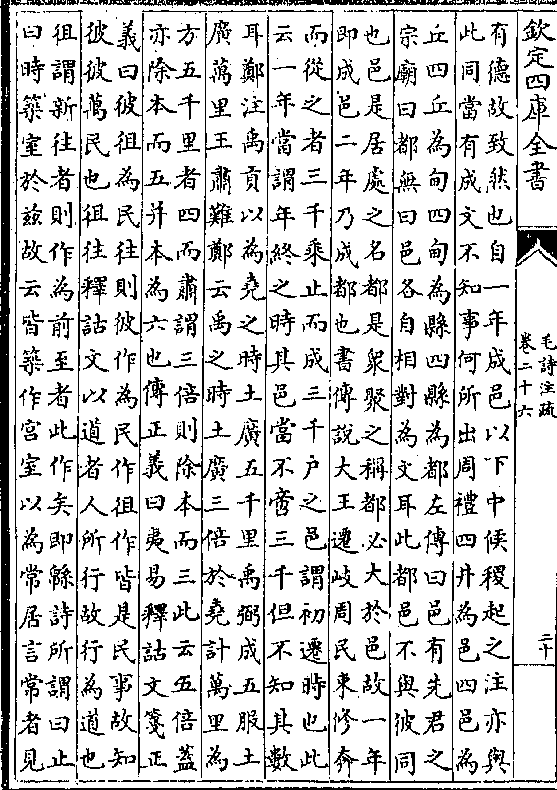 欽定四庫全書
毛詩注疏
卷二十六
二十
有德故致然也自一年成邑以下中侯稷起之注亦與
此同當有成文不知事何所出周禮四井為邑四邑為
丘四丘為甸四甸為縣四縣為都左傳曰邑有先君之
宗廟曰都無曰邑各自相對為文耳此都邑不與彼同
也邑是居處之名都是衆聚之稱都必大於邑故一年
即成邑二年乃成都也書傳說大王遷岐周民東修奔
而從之者三千乘止而成三千户之邑謂初遷時也此
云一年當謂年終之時其邑當不啻三千但不知其數
耳鄭注禹貢以為堯之時土廣五千里禹弼成五服土
廣萬里王肅難鄭云禹之時土廣三倍於堯計萬里為
方五千里者四而肅謂三倍則除本而三此云五倍蓋
亦除本而五并本為六也傳正義曰夷易釋詁文箋正
義曰彼徂為民往則彼作為民作徂作皆是民事故知
彼彼萬民也徂往釋詁文以道者人所行故行為道也
徂謂新往者則作為前至者此作矣即緜詩所謂曰止
曰時築室於兹故云皆築作宫室以為常居言常者見